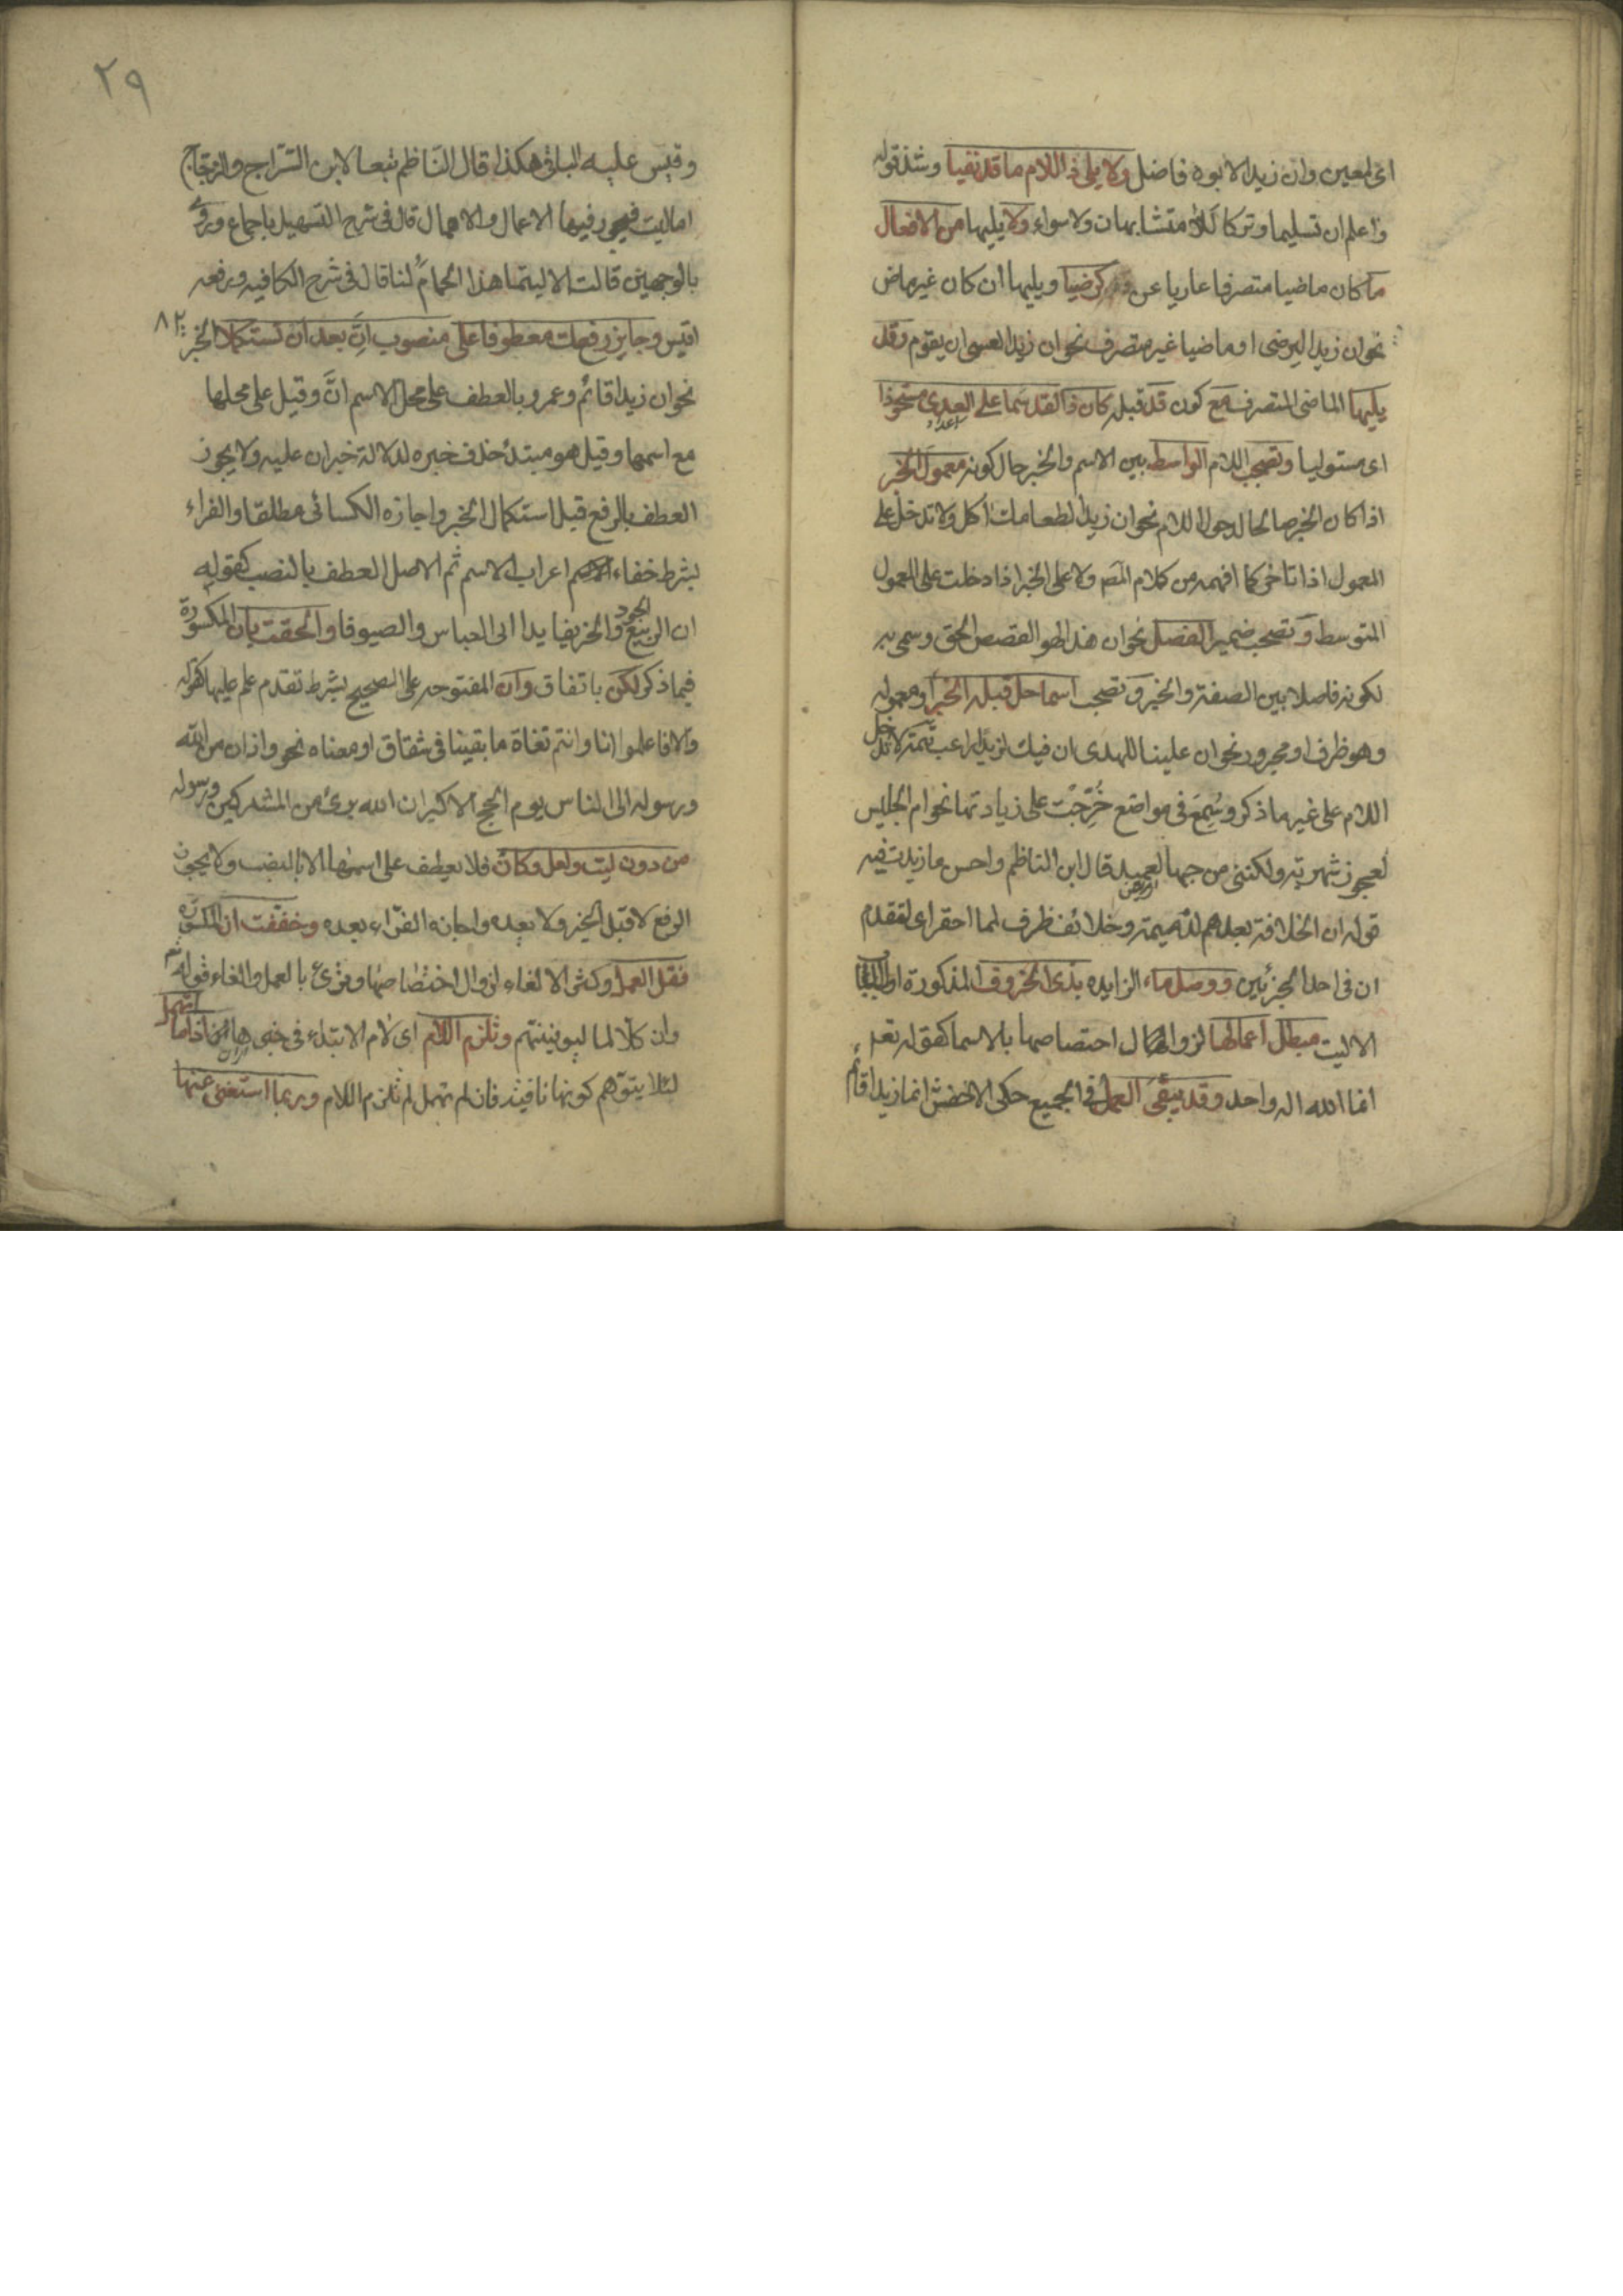 اى لمعين وان زيدا لابوه فاضل ولا يلى ذ اللام ما قد نفيا وشذ قوله
واعلم ان تسليما وتركا للا متشابهان ولا سواء ولا يليها من الافعال
ما كان ماضيا متصرفا عاريا عن قد كرضيا ويليها ان كان غير ماض
نحو ان زيدا ليرضى او ماضيا غير متصرف نحو ان زيدا لعسى ان يقوم وقد
يليها الماضى المتصرف مع كون قد قبله كان ذا لقد سما على العدى مستحوذا
اى مستوليا وتصحب اللام الواسط بين الاسم والخبر حال كونه معمول الخبر
اذا كان الخبر صالحا لدخول اللام نحو ان زيدا لطعامك اكل ولا تدخل على
المعمول اذا تاخر كما افهمه من كلام المص ولا على الخبر اذا دخلت على المعمول
المتوسط وتصحب ضمير الفصل نحو ان هذا لهو القصص الحق وسمى به
لكونه فاصلا بين الصفة والخبر وتصحب اسما حل قبله الخبر او معموله
وهو ظرف او مجرور نحو ان علينا للهدى ان فيك لزيدا راغب تتمة لا تدخل
اللام على غير ما ذكر وسُمِعَ فى مواضع خُرِّجَتْ على زيادتها نحو ام الحليس
لعجوز شهربه ولكننى من حبها لعميد قال ابن الناظم واحسن ما زيدت فيه
قوله ان الخلافة بعدهم لذميمة وخلائف ظرف لما احقر اى لتقدم
ان فى احد الجزئين ووصل ما الزايده بذى الحروف المذكورة اول الباب
الا ليت مبطل اعمالها لزوال اختصاصها بالاسما كقوله تعم
انما الله اله واحد وقد يبقى العمل فى الجميع حكى الاخفش انما زيدا قائم
٢٩
وقيس عليه الباقى هكذا قال الناظم تبعا لابن السّراج والزجّاج
اما ليت فيجوز فيها الاعمال والاهمال قال فى شرح التسهيل باجماع وروى
بالوجهين قالت الا ليتما هذا الحمامُ لنا قال فى شرح الكافيه ورفعه
اقيس وجايز رفعك معطوفا على منصوب انَّ بعد ان تستكملا الخبر
٨٢
نحو ان زيدا قائم وعمرو بالعطف على محل الاسم انَّ وقيل على محلها
مع اسمها وقيل هو مبتدا حذف خبره لدلالة خبر ان عليه ولا يجوز
العطف بالرفع قبل استكمال الخبر واجازه الكسائى مطلقا والفراء
بشرط خفاء اعراب الاسم ثم الاصل العطف بالنصب كقوله
ان الربيع الجود والخريفا يدا ابى العباس والصيوفا والحقت بان المكسورة
فيما ذكر لكن باتفاق وان المفتوحة على الصحيح بشرط تقدم علم عليها كقوله
والا فاعلموا انا وانتم بغاة ما بقينا فى شقاق او معناه نحو واذان من الله
ورسوله الى الناس يوم الحج الاكبر ان الله برئ من المشركين ورسوله
من دون ليت ولعل وكانّ فلا يعطف على اسمها الا بالنصب ولا يجوز
الرفع لا قبل الخبر ولا بعده واجازه الفرّاء بعده وخففت ان المكسورة
فقل العمل وكثر الالغاء لزوال اختصاصها وقرئ بالعمل والغاء قوله تم
وان كلّا لما ليوفينهم وتلزم اللام اى لام الابتداء فى خبرها اذا ما تهمل
لئلا يتوهم كونها نافية فان لم تهمل لم تلزم اللام وربما استغنى عنها